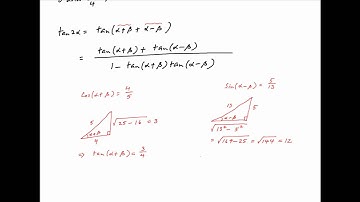 tan2α = tan(α+β + α-β)
= tan(α+β) + tan(α-β) / 1 - tan(α+β) tan(α-β)
Cos(α+β) = 4/5
5
√25-16 = 3
α+β
4
⇒ tan(α+β) = 3/4
Sin(α-β) = 5/13
13
5
α-β
√13²-5²
= √169-25 = √144 = 12